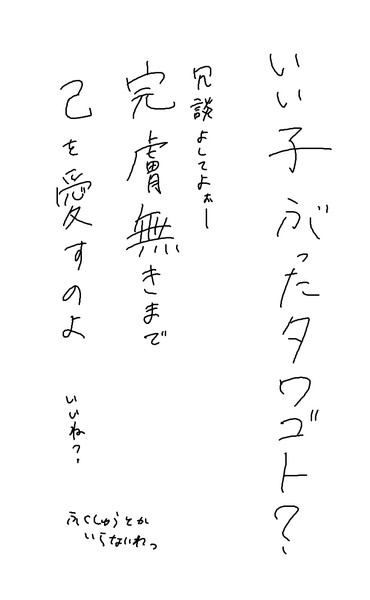 いい子ぶったタワゴト?
冗談よしてよォー
完膚無きまで
己を愛すのよ
いいね?
ふくしゅうとか
いらないわっ